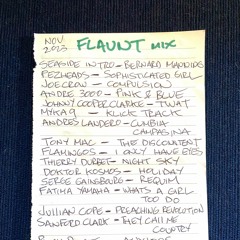 NOV
2023
FLAUNT MIX
SEASIDE INTRO - BERNARD MANNING
PEZHEADS - SOPHISTICATED GIRL
JOECROW - COMPULSION
ANDRE 3000 - PINK & BLUE
JOHNNY COOPER CLARKE - TWAT
MYKA 9 - KLICK TRACK
ANDRES LANDERO - CUMBIA
CAMPAGINA
TONY MAC - THE DISCONTENT
FLAMINGOS - I ONLY HAVE EYES
THIERRY DURBET - NIGHT SKY
DOKTOR KOSMOS - HOLIDAY
SERGE GAINSBOURG - REQUIM
FATIMA YAMAHA - WHATS A GIRL
TOO DO
JULLIAN COPE - PREACHING REVOLUTION
SANFORD CLARK - THEY CALL ME
COUNTRY